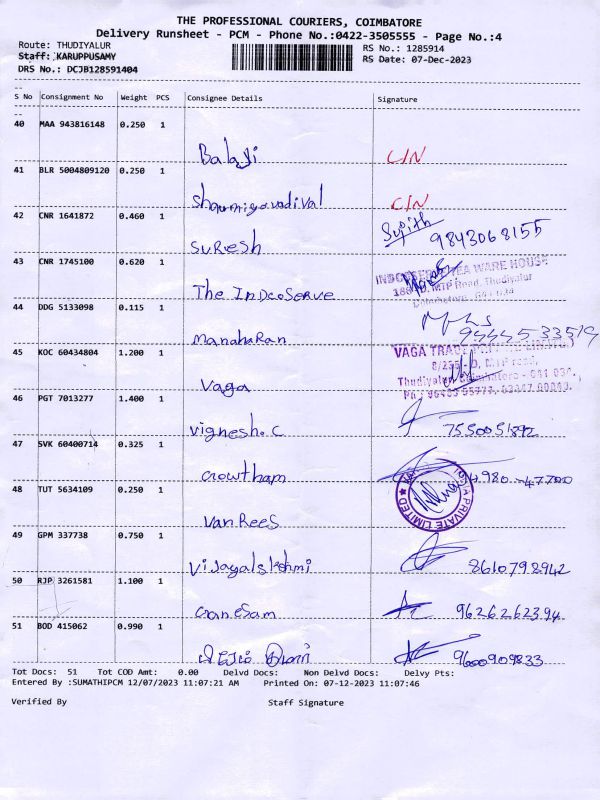 THE PROFESSIONAL COURIERS, COIMBATORE
Delivery Runsheet - PCM - Phone No.:0422-3505555 - Page No.:4
Route: THUDIYALUR RS No.: 1285914
Staff: KARUPPUSAMY RS Date: 07-Dec-2023
DRS No.: DCJB128591404
S No Consignment No Weight PCS Consignee Details Signature
40 MAA 943816148 0.250 1
Balaji
41 BLR 5004809120 0.250 1
42 CNR 1641872 0.460 1
SuResh Sujith 9843068155
43 CNR 1745100 0.620 1
The IndcoServe
WARE HOUSE
MTP Road, Thudiyalur
44 DDG 5133098 0.115 1
ManohaRan 9444533519
45 KOC 60434804 1.200 1
Vaga
VAGA
46 PGT 7013277 1.400 1
Vignesh.C
47 SVK 60400714 0.325 1
Gowtham
PRIVATE LIMITED
48 TUT 5634109 0.250 1
Van Rees
49 GPM 337738 0.750 1
8610798942
50 RJP 3261581 1.100 1
Ganesam 9626262394
51 BOD 415062 0.990 1
9600909833
Tot Docs: 51 Tot COD Amt: 0.00 Delvd Docs: Non Delvd Docs: Delvy Pts:
Entered By :SUMATHIPCM 12/07/2023 11:07:21 AM Printed On: 07-12-2023 11:07:46
Verified By Staff Signature